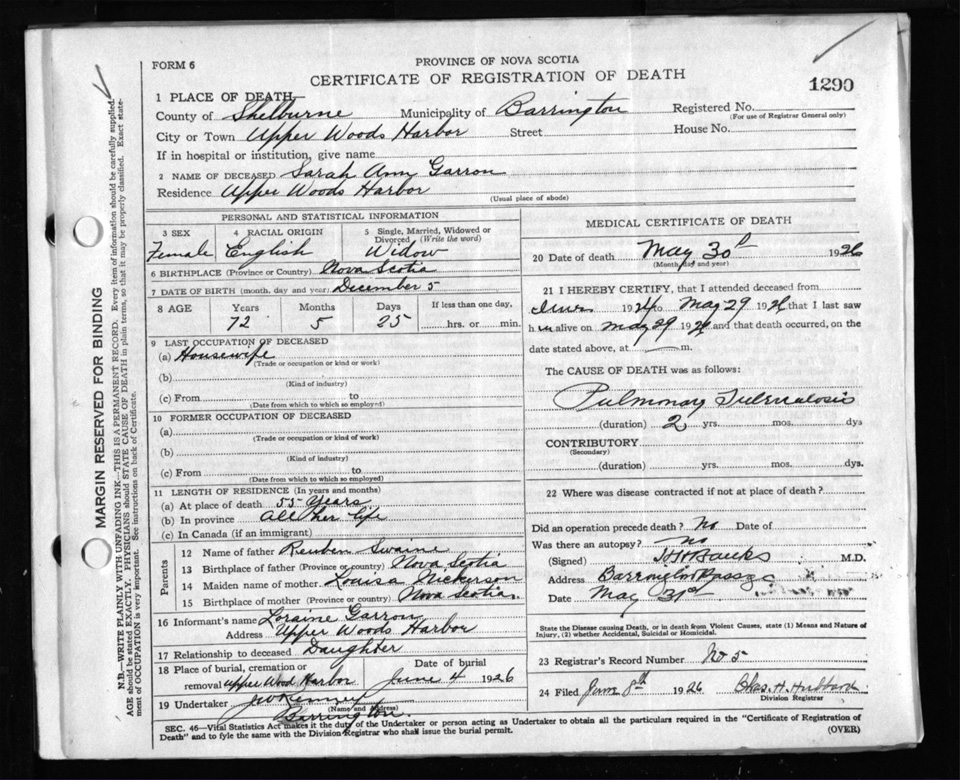 FORM 6
PROVINCE OF NOVA SCOTIA
CERTIFICATE OF REGISTRATION OF DEATH
1290
1 PLACE OF DEATH—
County of Shelburne Municipality of Barrington Registered No.
(For use of Registrar General only)
City or Town Upper Woods Harbor Street House No.
If in hospital or institution, give name
2 NAME OF DECEASED Sarah Ann Garron
Residence Upper Woods Harbor
(Usual place of abode)
PERSONAL AND STATISTICAL INFORMATION
3 SEX 4 RACIAL ORIGIN 5 Single, Married, Widowed or Divorced (Write the word)
Female English Widow
6 BIRTHPLACE (Province or Country) Nova Scotia
7 DATE OF BIRTH (month, day and year) December 5
8 AGE Years Months Days If less than one day,
72 5 25 hrs. or min.
9 LAST OCCUPATION OF DECEASED
(a) Housewife
(Trade or occupation or kind or work)
(b)
(Kind of industry)
(c) From to
(Date from which to which so employed)
10 FORMER OCCUPATION OF DECEASED
(a)
(Trade or occupation or kind of work)
(b)
(Kind of industry)
(c) From to
(Date from which to which so employed)
11 LENGTH OF RESIDENCE (In years and months)
(a) At place of death 55 Years
(b) In province all her life
(c) In Canada (if an immigrant)
Parents
12 Name of father Reuben Swaine
13 Birthplace of father (Province or country) Nova Scotia
14 Maiden name of mother Louisa Nickerson
15 Birthplace of mother (Province or country) Nova Scotia.
16 Informant's name Loraine Garron
Address Upper Woods Harbor
17 Relationship to deceased Daughter
18 Place of burial, cremation or removal Upper Wood Harbor Date of burial June 4 1926
19 Undertaker
(Name and address)
Barrington.
MEDICAL CERTIFICATE OF DEATH
20 Date of death May 30 1926
(Month, day and year)
21 I HEREBY CERTIFY, that I attended deceased from
1924 to May 29 1926 that I last saw
h alive on May 29 1926 and that death occurred, on the
date stated above, at m.
The CAUSE OF DEATH was as follows:
Pulmonary Tuberculosis
(duration) 2 yrs. mos. dys
CONTRIBUTORY
(Secondary)
(duration) yrs. mos. dys.
22 Where was disease contracted if not at place of death?
Did an operation precede death? No Date of
Was there an autopsy? no
(Signed) M.D.
Address Barrington Passage
Date May 31st
State the Disease causing Death, or in death from Violent Causes, state (1) Means and Nature of Injury, (2) whether Accidental, Suicidal or Homicidal.
23 Registrar's Record Number No 5
24 Filed June 8th 1926 Chas. H. Hubbard
Division Registrar
SEC. 45—Vital Statistics Act makes it the duty of the Undertaker or person acting as Undertaker to obtain all the particulars required in the "Certificate of Registration of
Death" and to fyle the same with the Division Registrar who shall issue the burial permit. (OVER)
MARGIN RESERVED FOR BINDING
N.B.—WRITE PLAINLY WITH UNFADING INK—THIS IS A PERMANENT RECORD. Every item of information should be carefully supplied.
AGE should be stated EXACTLY. PHYSICIANS should STATE CAUSE OF DEATH in plain terms, so that it may be properly classified. Exact state-
ment of OCCUPATION is very important. See instructions on back of Certificate.